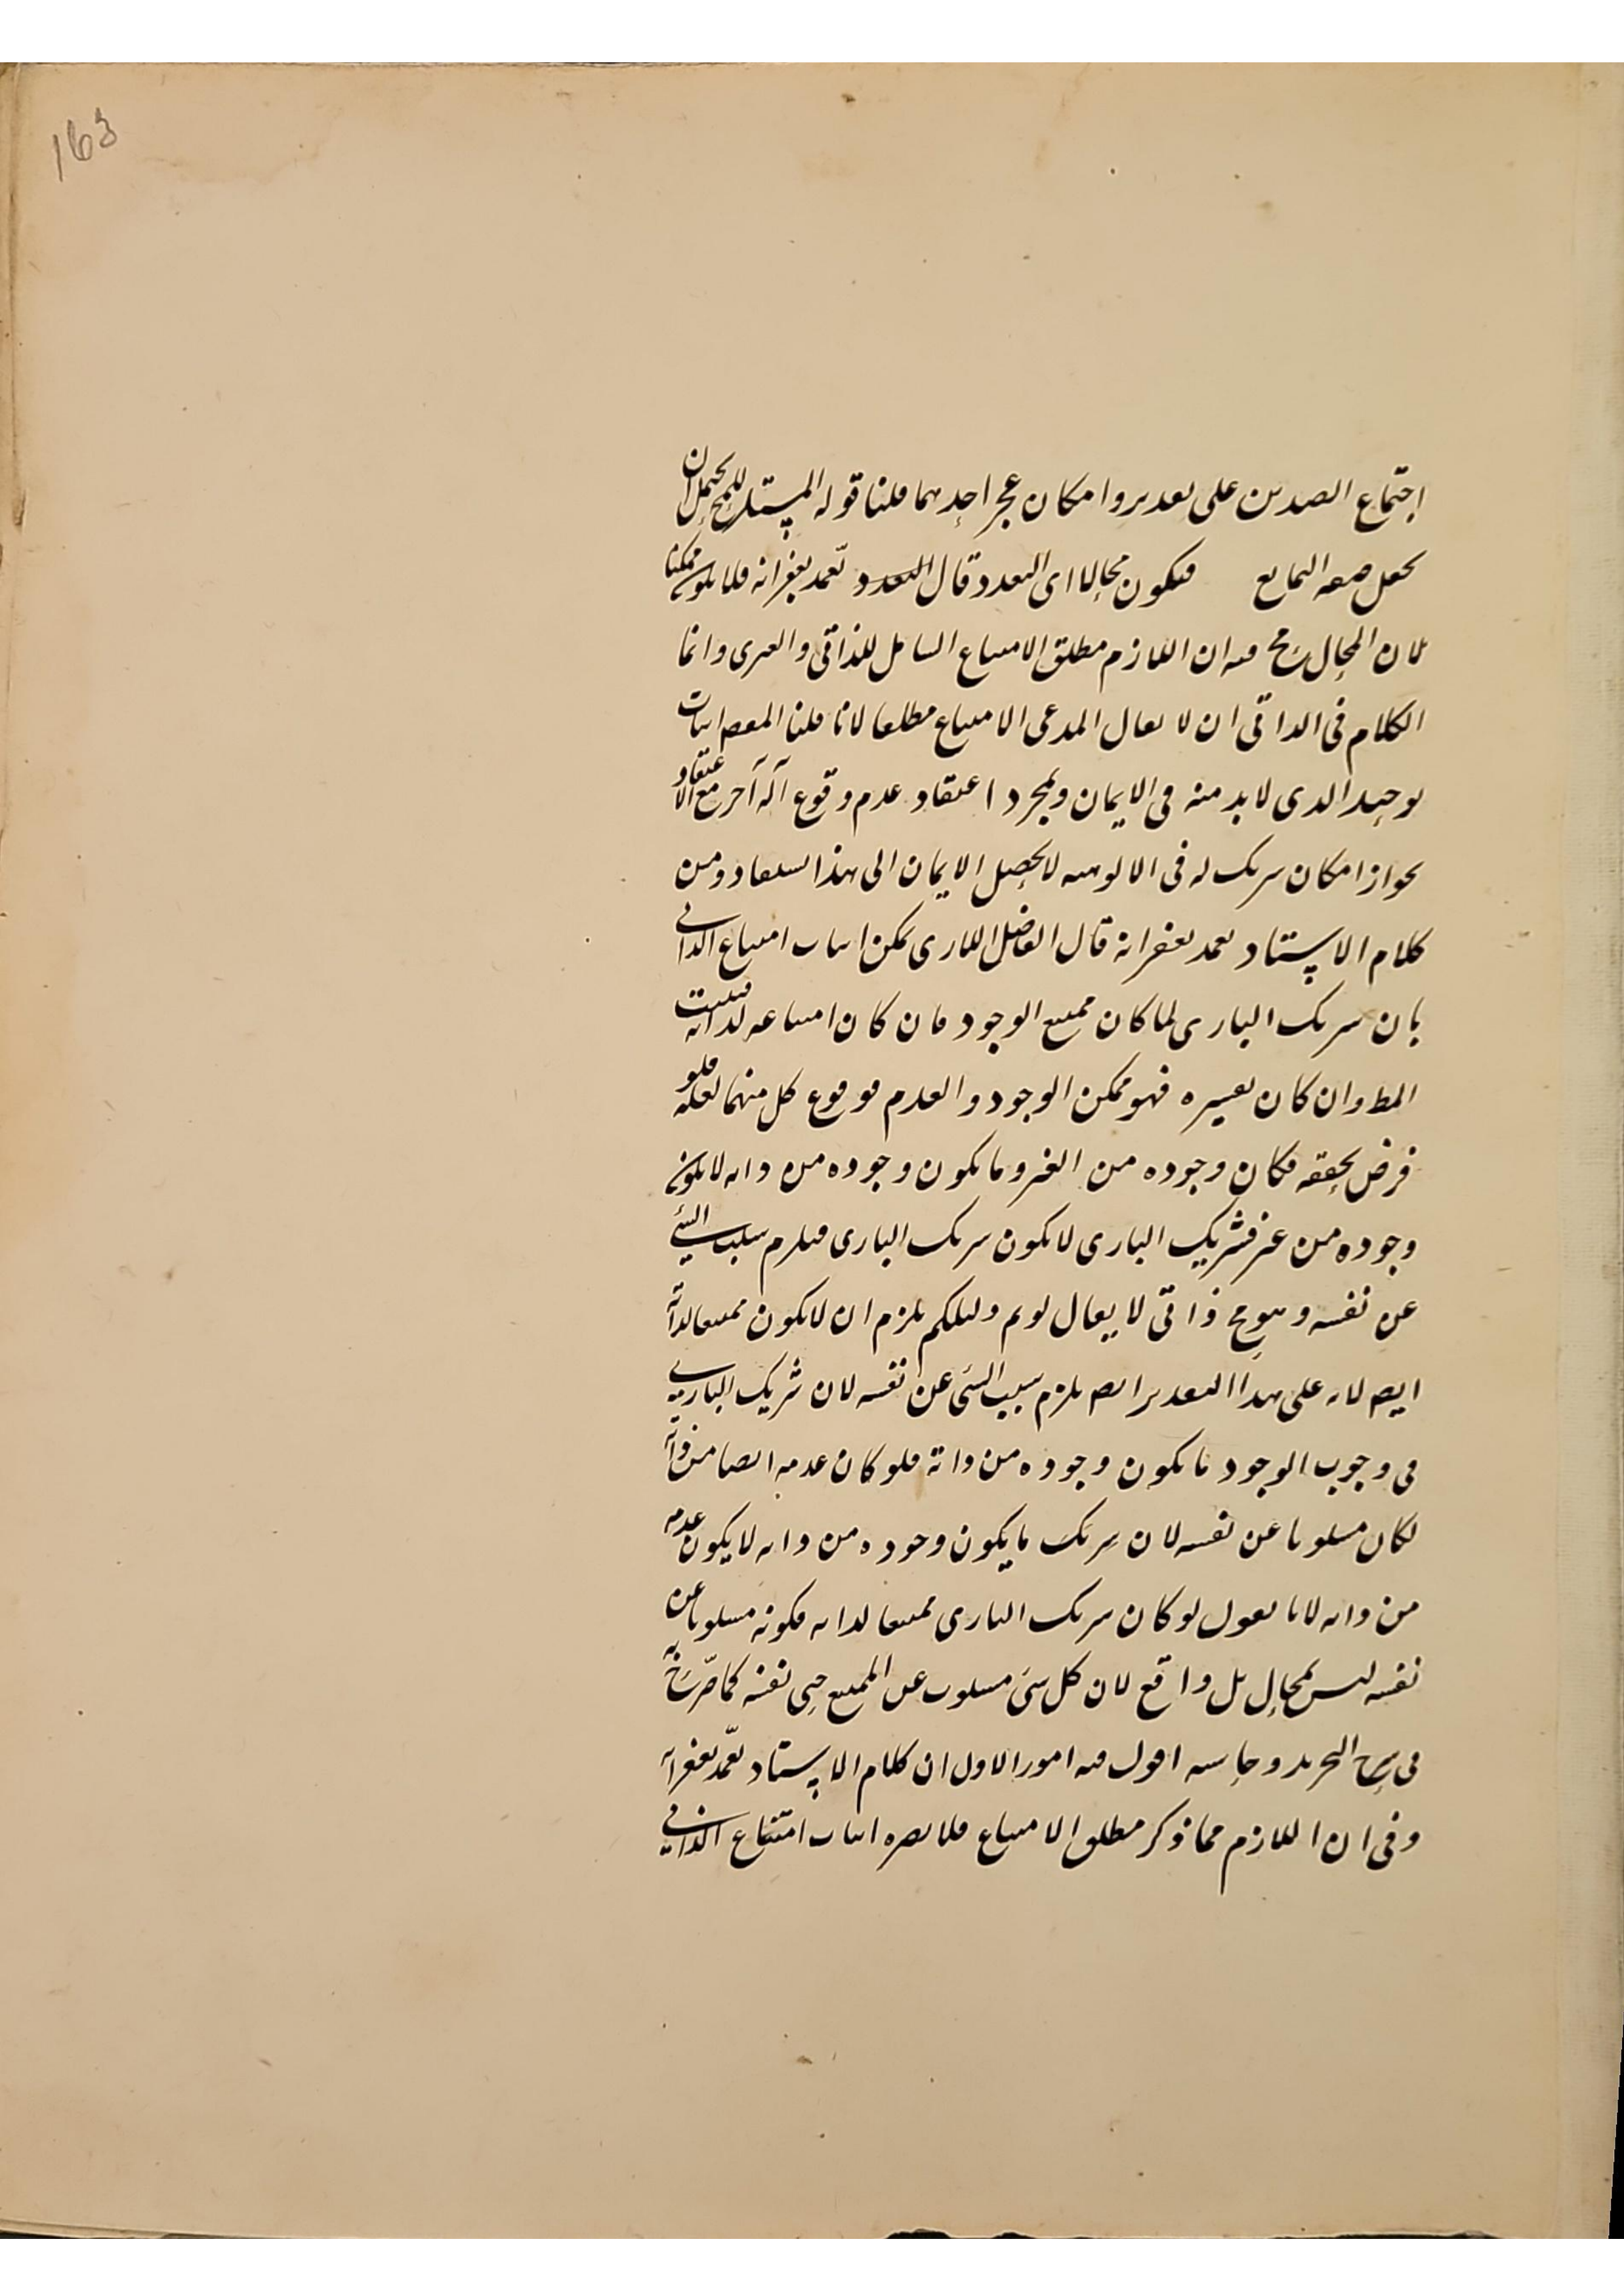 163
اجتماع الضدين على تقدير وامكان عجز احدهما قلنا قوله المستلزم للمح يحتمل ان
يجعل صفة التمانع فيكون محالا اى التعدد قال التعدد تغمد بغفرانه فلا يكون ممكنا
لان المحال مح فيه ان اللازم مطلق الامتناع الشامل للذاتى والغيرى وانما
الكلام فى الذاتى ان لا يقال المدعى الامتناع مطلقا لانا قلنا المقصـ اثبات
توحيد الذى لابد منه فى الايمان وبمجرد اعتقاد عدم وقوع آله آخر مع الاعتقاد
بجواز امكان شريك له فى الالوهية لا يحصل الايمان الى هذا يستفاد من
كلام الاستاد تغمد بغفرانه قال الفاضل اللارى يمكن اثبات امتناع الذاتى
بان شريك البارى لما كان ممتنع الوجود فان كان امتناعه لذاته فيثبت
المط وان كان لغيره فهو ممكن الوجود والعدم فوقوع كل منهما لعلة فلو
فرض تحققه فكان وجوده من الغير وما يكون وجوده من ذاته لا يكون
وجوده من غير فشريك البارى لا يكون شريك البارى فيلزم سلب الشئ
عن نفسه وهو مح ذاتى لا يقال لو تم دليلكم يلزم ان لا يكون ممتنعا لذاته
ايضـ لانه على هذا التقدير ايضـ يلزم سلب الشئ عن نفسه لان شريك البارى
فى وجوب الوجود ما يكون وجوده من ذاته فلو كان عدمه ايضا من ذاته
لكان مسلوبا عن نفسه لان شريك ما يكون وجوده من ذاته لا يكون عدمه
من ذاته لانا نقول لو كان شريك البارى ممتنعا لذاته فكونه مسلوبا عن
نفسه ليس بمحال بل واقع لان كل شئ مسلوب عن الممتنع حتى نفسه كما صرح به
فى شرح التجريد وحاشيه اقول فيه امور الاول ان كلام الاستاد تغمد بغفرانه
وفى ان اللازم مما ذكر مطلق الامتناع فلا يضره اثبات امتناع الذاتى